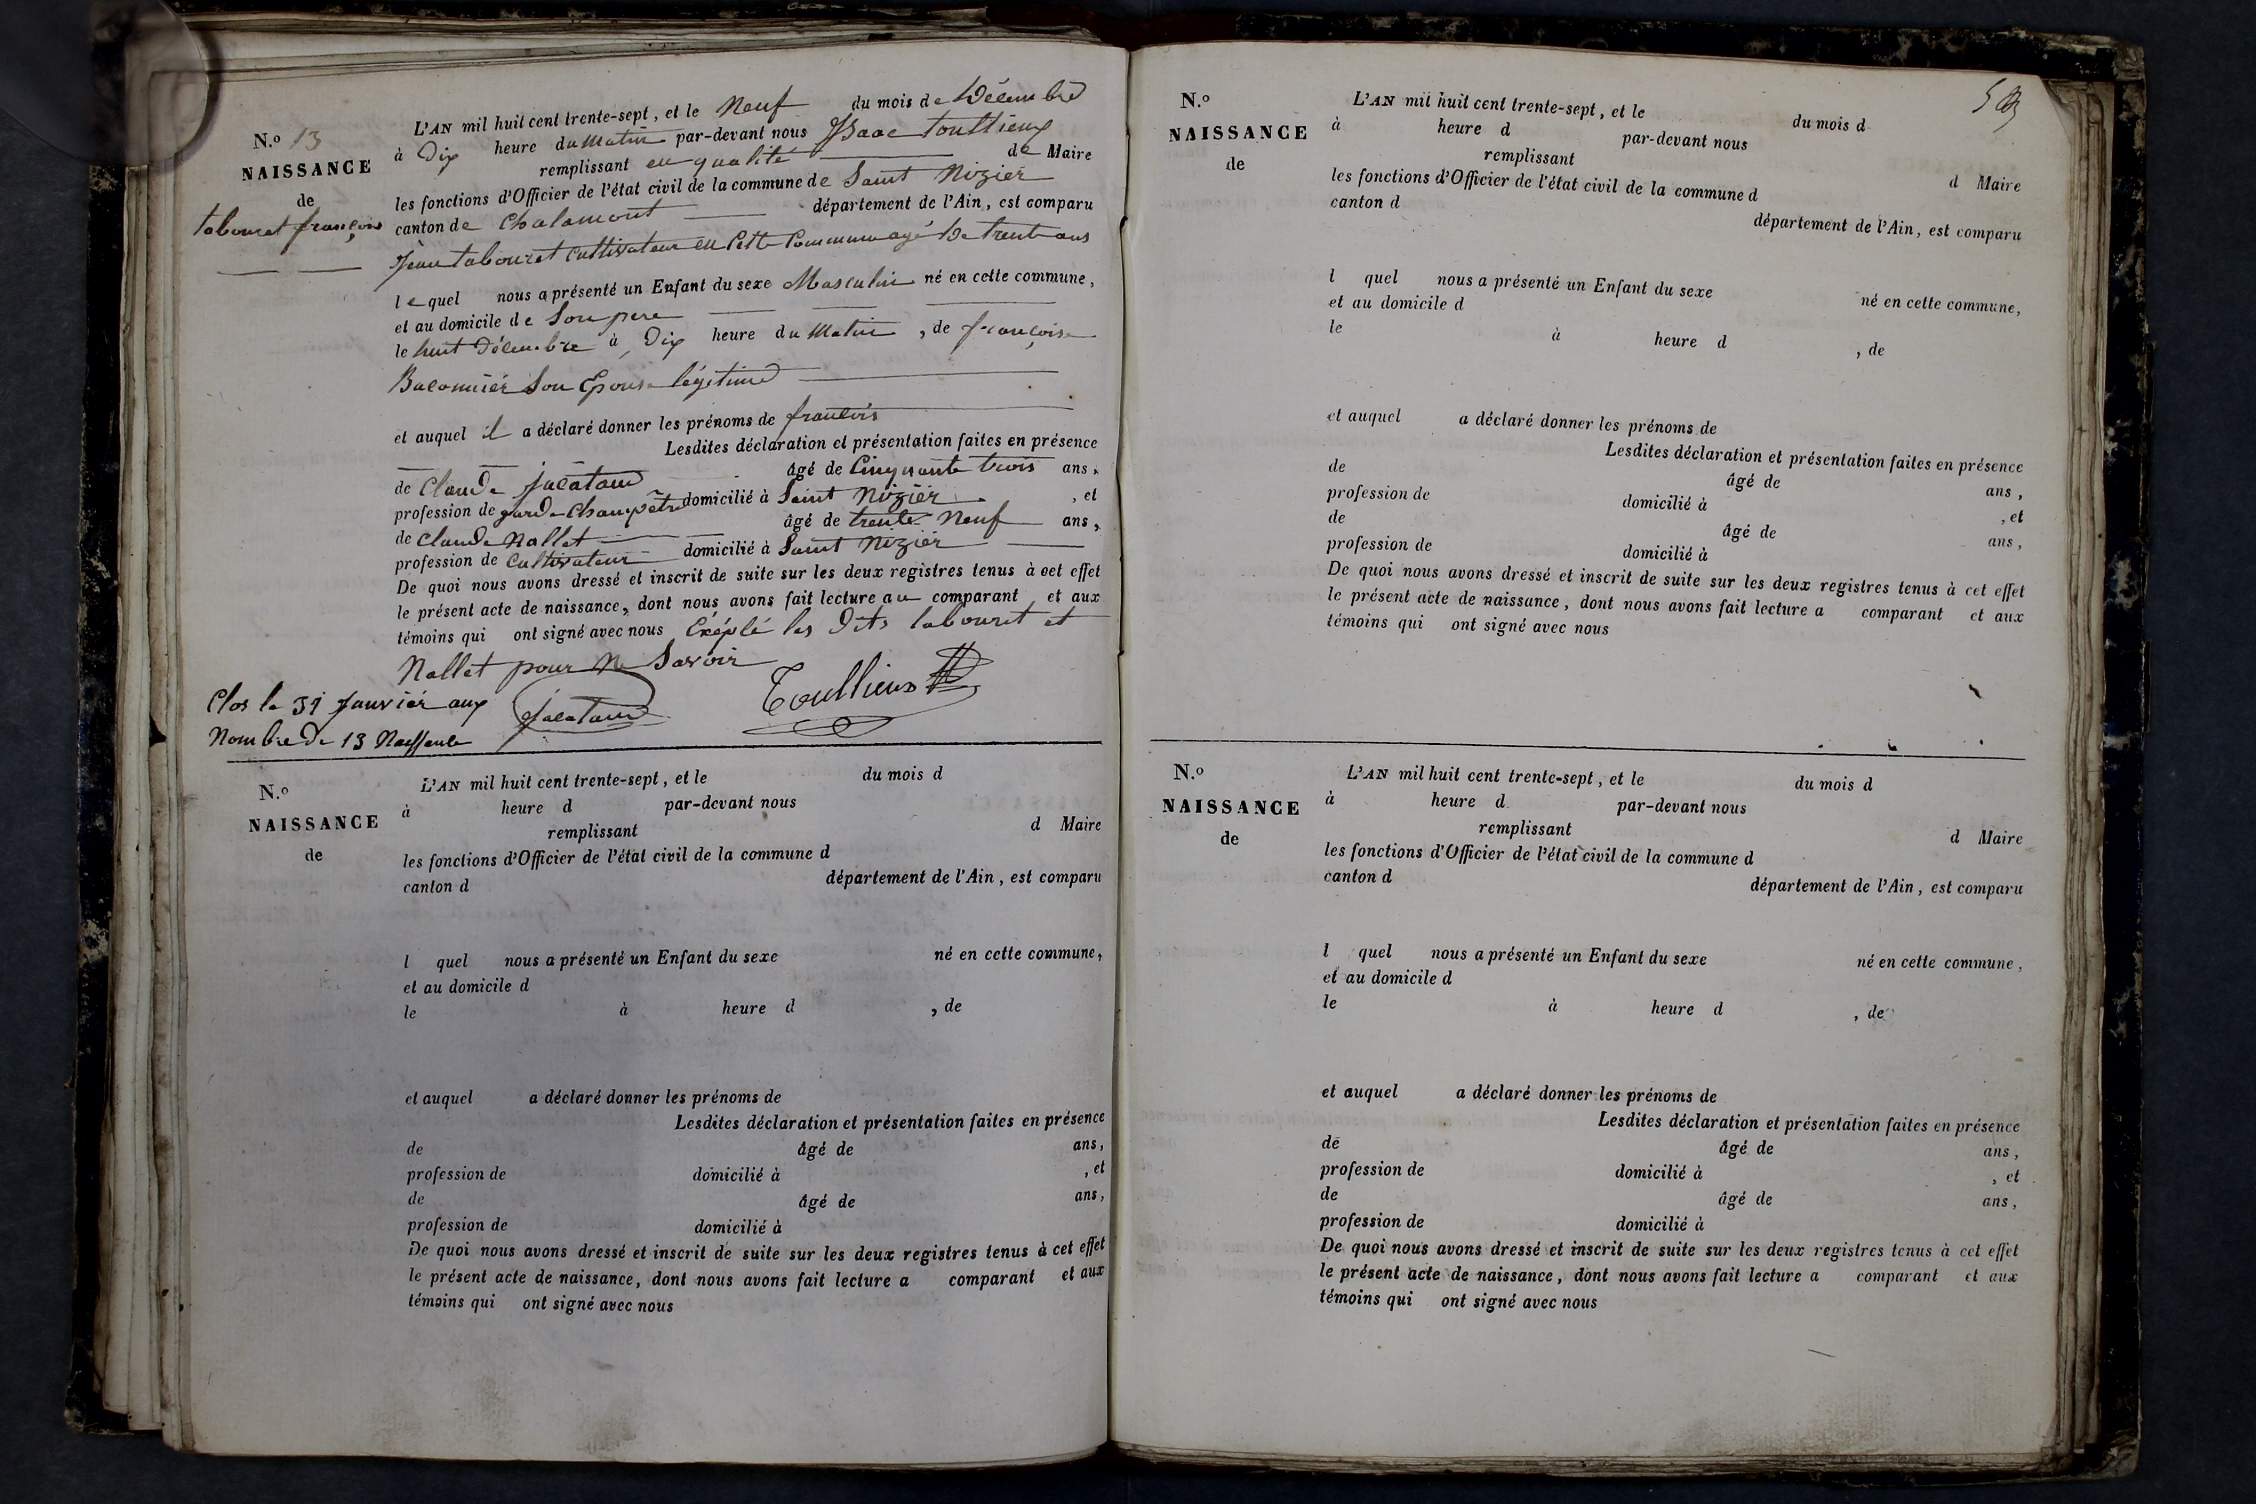 N.o 13
NAISSANCE
de
tabouret françois
L'AN mil huit cent trente-sept, et le Neuf du mois de Décembre
à Dix heure du Matin par-devant nous Isaac Toullieux
remplissant en qualité de Maire
les fonctions d'Officier de l'état civil de la commune de Saint Nizier
canton de Chalamont département de l'Ain, est comparu
Jean tabouret cultivateur en cette Commune agé De trente ans
le quel nous a présenté un Enfant du sexe Masculin né en cette commune,
et au domicile de Son pere
le huit Décembre à Dix heure du Matin, de françoise
Baconnier Son Epouse légitime
et auquel il a déclaré donner les prénoms de françois
Lesdites déclaration et présentation faites en présence
de Claude Jacatand âgé de Cinquante trois ans,
profession de garde Champêtre domicilié à Saint Nizier, et
de Claude Nallet âgé de trente Neuf ans,
profession de Cultivateur domicilié à Saint Nizier
De quoi nous avons dressé et inscrit de suite sur les deux registres tenus à cet effet
le présent acte de naissance, dont nous avons fait lecture au comparant et aux
témoins qui ont signé avec nous Exéplé les Dits tabouret et
Nallet pour Ne Savoir
Jacatand Toullieux
Clos le 31 Janvier aux
Nombre De 13 Naissente
N.o
NAISSANCE
de
L'AN mil huit cent trente-sept, et le du mois d
à heure d par-devant nous
remplissant d Maire
les fonctions d'Officier de l'état civil de la commune d
canton d département de l'Ain, est comparu
l quel nous a présenté un Enfant du sexe né en cette commune,
et au domicile d
le à heure d , de
et auquel a déclaré donner les prénoms de
Lesdites déclaration et présentation faites en présence
de âgé de ans,
profession de domicilié à , et
de âgé de ans,
profession de domicilié à
De quoi nous avons dressé et inscrit de suite sur les deux registres tenus à cet effet
le présent acte de naissance, dont nous avons fait lecture a comparant et aux
témoins qui ont signé avec nous
N.o
NAISSANCE
de
L'AN mil huit cent trente-sept, et le du mois d
à heure d par-devant nous
remplissant d Maire
les fonctions d'Officier de l'état civil de la commune d
canton d département de l'Ain, est comparu
l quel nous a présenté un Enfant du sexe né en cette commune,
et au domicile d
le à heure d , de
et auquel a déclaré donner les prénoms de
Lesdites déclaration et présentation faites en présence
de âgé de ans,
profession de domicilié à , et
de âgé de ans,
profession de domicilié à
De quoi nous avons dressé et inscrit de suite sur les deux registres tenus à cet effet
le présent acte de naissance, dont nous avons fait lecture a comparant et aux
témoins qui ont signé avec nous
N.o
NAISSANCE
de
L'AN mil huit cent trente-sept, et le du mois d
à heure d par-devant nous
remplissant d Maire
les fonctions d'Officier de l'état civil de la commune d
canton d département de l'Ain, est comparu
l quel nous a présenté un Enfant du sexe né en cette commune,
et au domicile d
le à heure d , de
et auquel a déclaré donner les prénoms de
Lesdites déclaration et présentation faites en présence
de âgé de ans,
profession de domicilié à , et
de âgé de ans,
profession de domicilié à
De quoi nous avons dressé et inscrit de suite sur les deux registres tenus à cet effet
le présent acte de naissance, dont nous avons fait lecture a comparant et aux
témoins qui ont signé avec nous